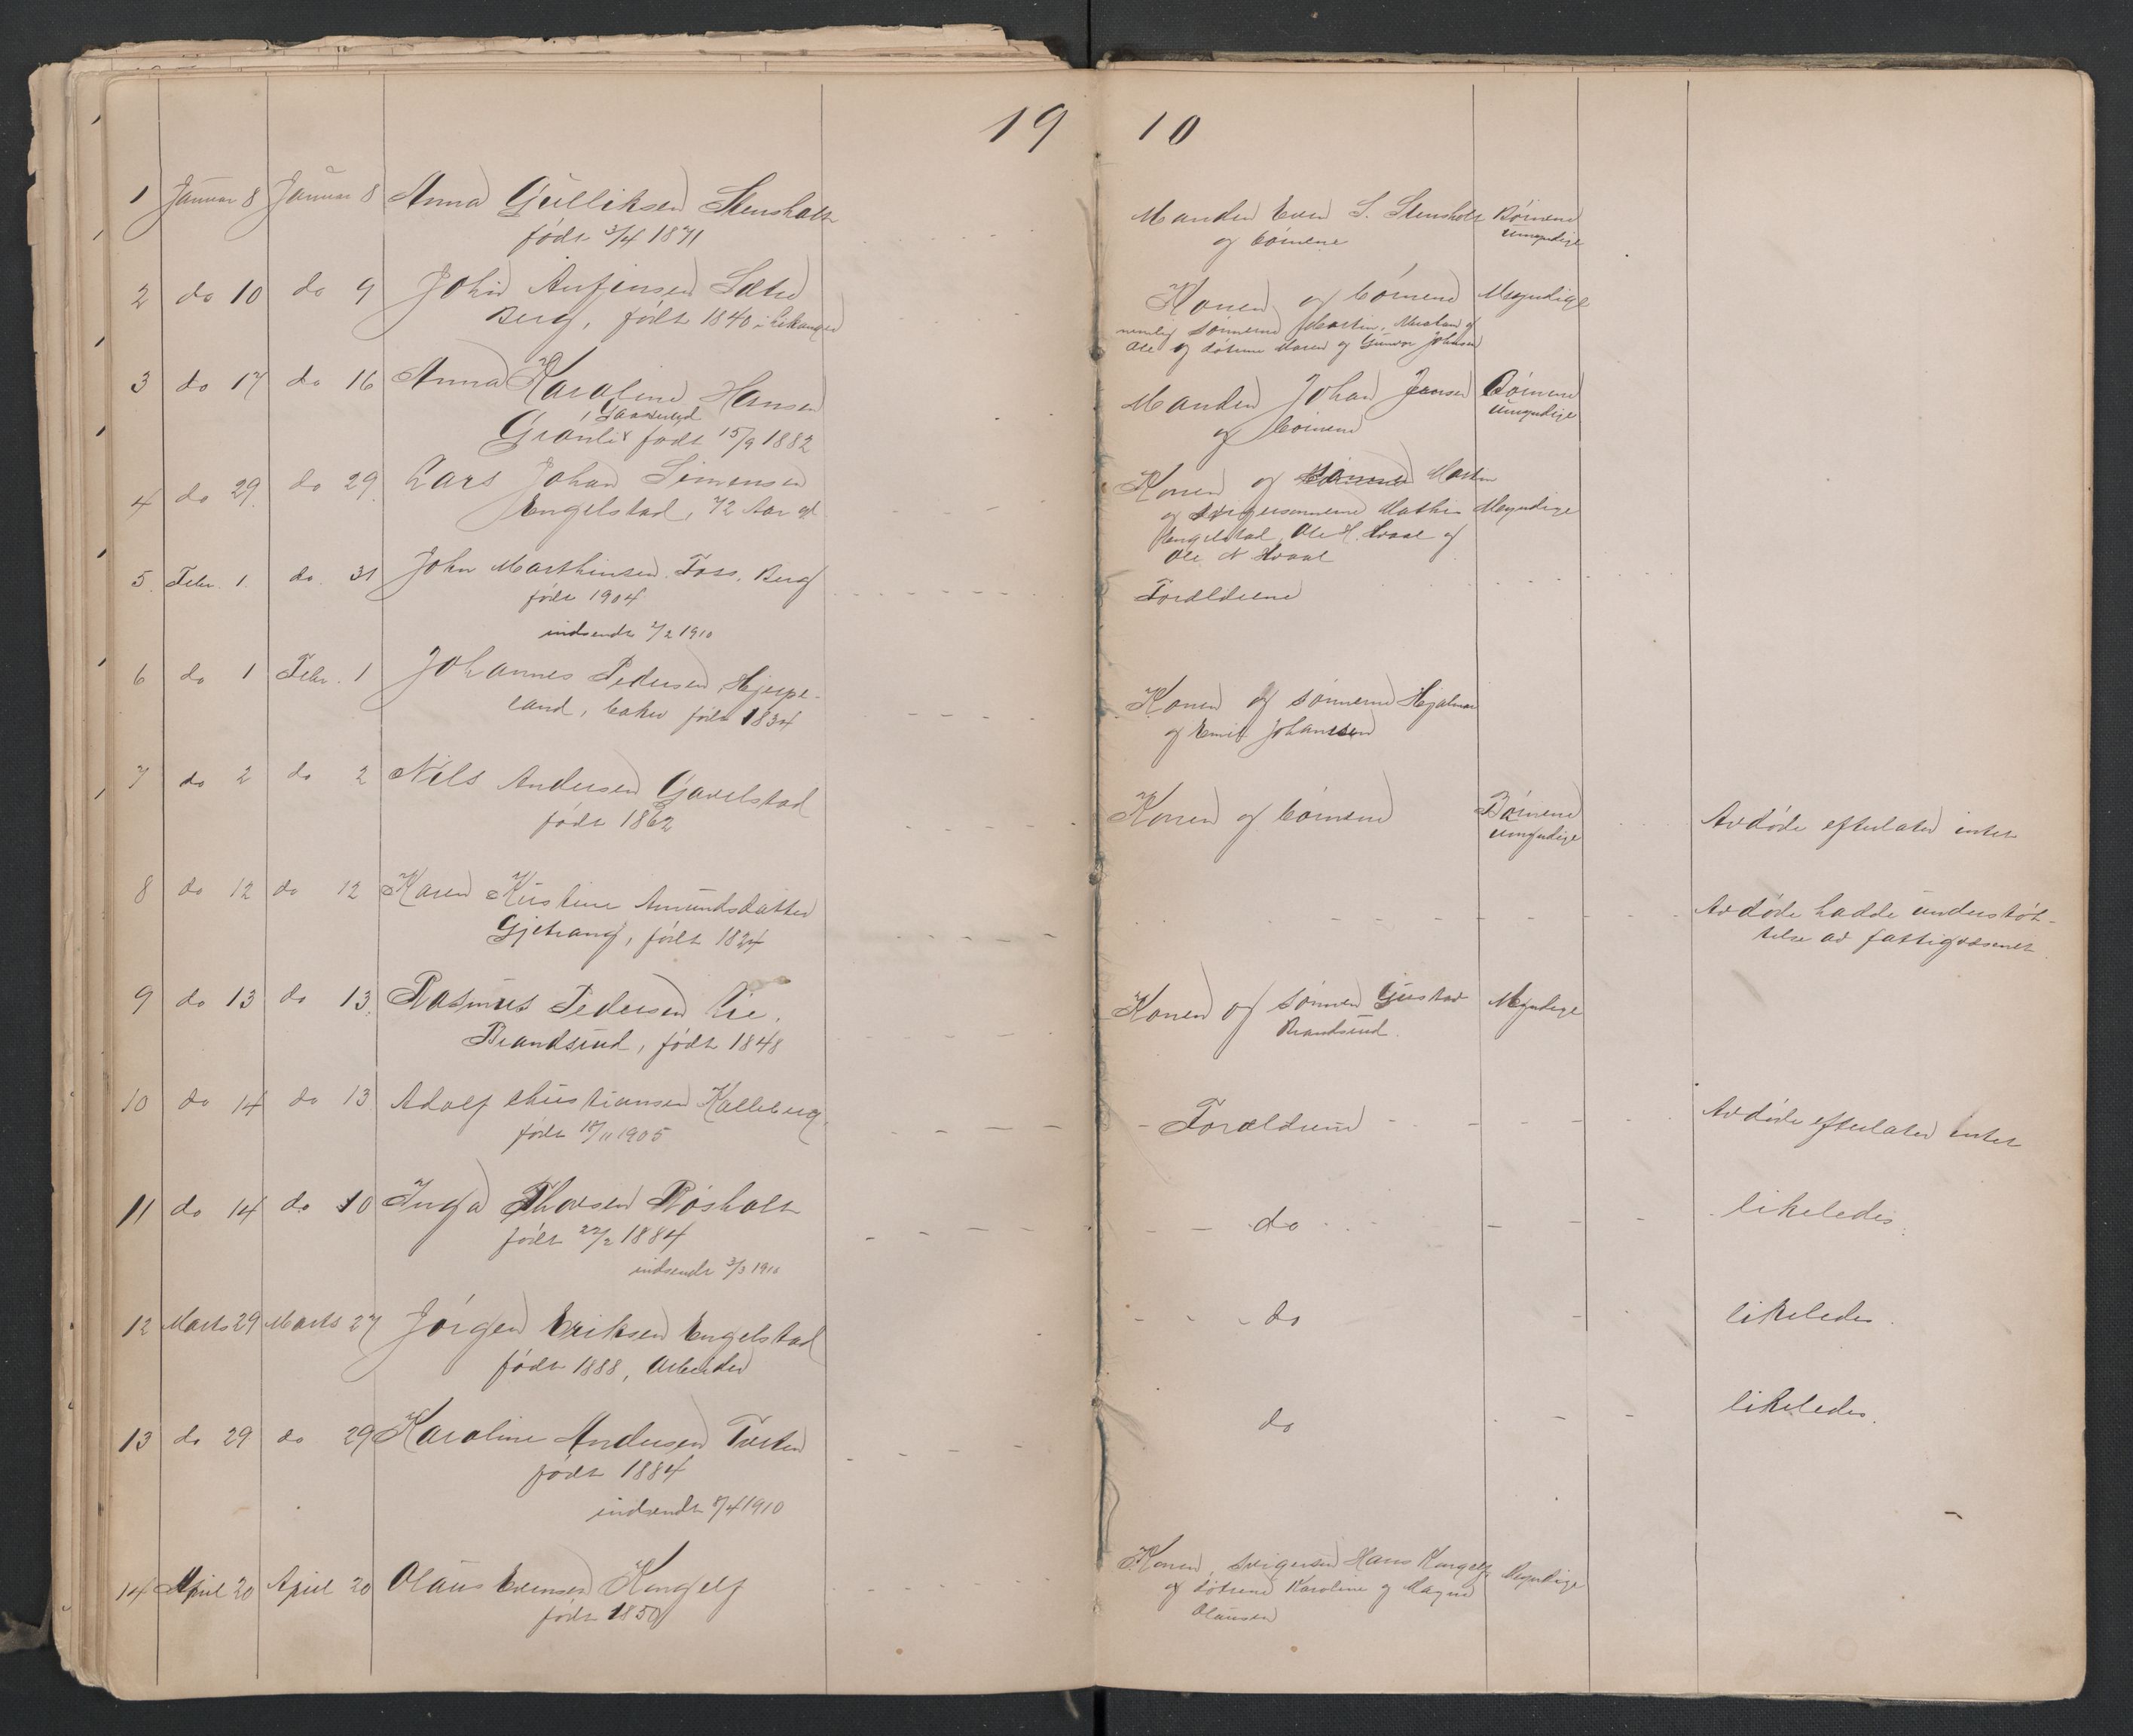 19 10
1 Januar 8 Januar 8 Anna Gulliksen Stensholt
født 3/4 1871
Manden Even S. Stensholt Børnene
og børnene umyndige
2 do 10 do 9 John Anfinsen
Berg, født 1840 i Leikanger
Konen og børnene Myndige
nemlig sønnerne Martin, og
Ole og døtrene Maren og Gunvor Johnsen
3 do 17 do 16 Anna Karoline Hansen
Granli født 15/9 1882
Manden Johan Jansen Børnene
og børnene umyndige
4 do 29 do 29 Lars Johan Simensen
Engelstad, 72 Aar gl
Konen og Martin
og svigersønnerne Mathis Myndige
Engelstad, Ole H. Hvaal og
Ole N Hvaal
5 Febr. 1. do. 31 John Marthinsen Foss, Berg
født 1904
Forældrene
indsendt 2/2 1910
6 do 1 Febr. 1 Johannes Pedersen, Hjerpe-
land, baker født 1834
Konen og sønnerne Hjalmar
og Emil Johansen
7 do 2 do 2 Nils Andersen Gavelstad
født 1862
Konen og børnene Børnene Avdøde efterlater intet
umyndige
8 do 12 do 12 Karen Kirstine Amundsdatter
Gjetrang, født 1824
Avdøde hadde understøt-
telse av fattigvæsenet
9 do 13 do 13 Rasmus Pedersen Lie,
Brandsrud, født 1848
Konen og sønnen Gustav Myndige
Brandsrud.
10 do 14 do 13 Adolf Christiansen Kalleberg
født 15/11 1905
Forældrene Avdøde efterlater intet
11 do 14 do 10 Inga Thorsen Røsholt
født 22/2 1884
do likeledes.
indsendt 3/3 1910
12 Marts 29 Marts 27 Jørgen Eriksen Engelstad
født 1888, Arbeider
do likeledes.
13 do 29 do 29 Karoline Andersen Tveten
født 1884
do likeledes.
indsendt 8/4 1910
14 April 20 April 20 Olaus Evensen Kongelf
født 1850
Konen, svigersøn Hans Kongelf Myndige
og døtrene Karoline og Magna
Olausen